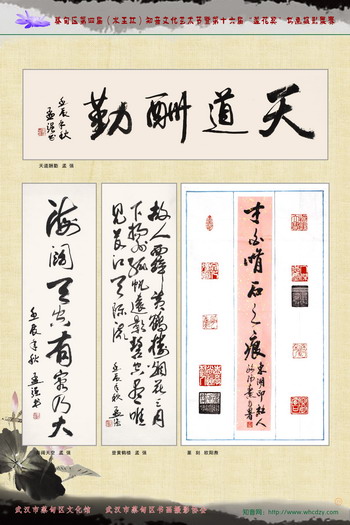 蔡甸区第四届知音文化艺术节暨第十六届“莲花奖”书画摄影
天道酬勤
壬辰年秋
孟强书
天道酬勤 孟 强
海阔天空有容乃大
壬辰年秋 孟强书
故人西辞黄鹤楼烟花三月
下扬州孤帆远影碧空尽唯
见长江天际流
壬辰年秋 孟强
石之痕
东湖印社人
孟 强
登黄鹤楼 孟 强
篆 刻 欧阳
武汉市蔡甸区文化馆
武汉市蔡甸区书画摄影协会
知音网：http://www.whcdzy.com